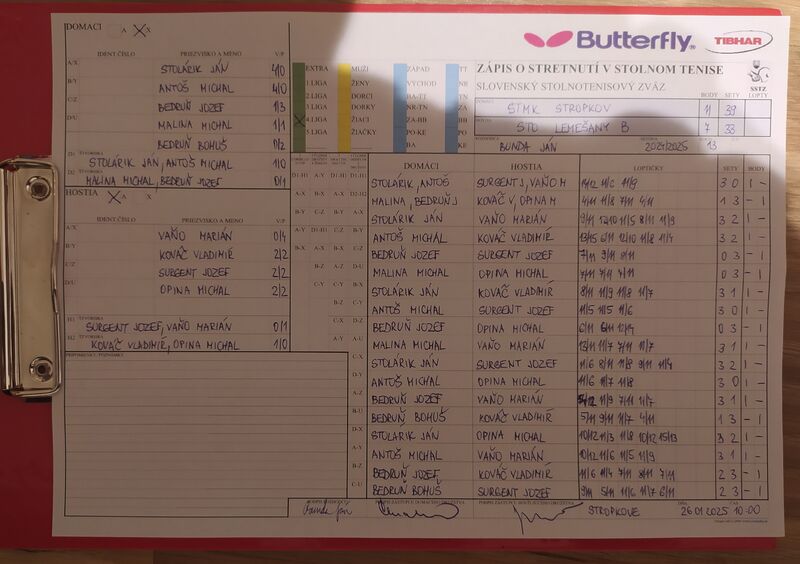 DOMACI A X
Butterfly
TIBHAR
IDENT.ČÍSLO PRIEZVISKO A MENO V/P
A/X STOLÁRIK JÁN 4/0
B/Y ANTOŠ MICHAL 4/0
C/Z BEDRUŇ JOZEF 1/3
MALINA MICHAL 1/1
BEDRUŇ BOHUŠ 0/2
STOLÁRIK JAN, ANTOŠ MICHAL 1/0
MALINA MICHAL, BEDRUŇ JOZEF 0/1
HOSTIA X A X
IDENT.ČÍSLO PRIEZVISKO A MENO V/P
A/X VAŇO MARIÁN 0/4
B/Y KOVÁČ VLADIMÍR 2/2
C/Z SURGENT JOZEF 2/2
D/U OPINA MICHAL 2/2
SURGENT JOZEF, VAŇO MARIÁN 0/1
KOVÁČ VLADIMÍR, OPINA MICHAL 1/0
EXTRA MUŽI ZÁPAD TT
1 LIGA ŽENY VÝCHOD NR
2 LIGA DORCI BA-TT TN
3 LIGA DORKY NR-TN ZA
4 LIGA ŽIACI ZA-BB BB
5 LIGA ŽIAČKY PO-KE PO
BA KE
ZÁPIS O STRETNUTÍ V STOLNOM TENISE
SLOVENSKÝ STOLNOTENISOVÝ ZVÄZ
SSTZ
BODY SETY LOPTY
STMK STROPKOV 11 39
STO LEMEŠANY B 7 33
BUNDA JÁN 2024/2025 13
DOMÁCI HOSTIA LOPTIČKY SETY BODY
STOLÁRIK, ANTOŠ SURGENT J, VAŇO M 14/12 11/6 11/9 3 0 1 -
MALINA, BEDRUŇ J KOVÁČ V, OPINA M 4/11 11/8 7/11 4/11 1 3 - 1
STOLÁRIK JÁN VAŇO MARIÁN 9/11 12/10 11/5 8/11 11/9 3 2 1 -
ANTOŠ MICHAL KOVÁČ VLADIMÍR 13/15 6/11 12/10 11/8 11/4 3 2 1 -
BEDRUŇ JOZEF SURGENT JOZEF 7/11 9/11 8/11 0 3 - 1
MALINA MICHAL OPINA MICHAL 7/11 7/11 4/11 0 3 - 1
STOLÁRIK JÁN KOVÁČ VLADIMÍR 8/11 11/9 11/8 11/7 3 1 1 -
ANTOŠ MICHAL SURGENT JOZEF 11/5 11/5 11/6 3 0 1 -
BEDRUŇ JOZEF OPINA MICHAL 6/11 8/11 12/14 0 3 - 1
MALINA MICHAL VAŇO MARIÁN 13/11 11/7 7/11 11/7 3 1 1 -
STOLÁRIK JÁN SURGENT JOZEF 11/6 8/11 11/8 9/11 11/4 3 2 1 -
ANTOŠ MICHAL OPINA MICHAL 11/6 11/7 11/8 3 0 1 -
BEDRUŇ JOZEF VAŇO MARIÁN 11/9 7/11 11/7 3 1 1 -
BEDRUŇ BOHUŠ KOVÁČ VLADIMÍR 5/11 9/11 11/7 4/11 1 3 - 1
STOLÁRIK JÁN OPINA MICHAL 10/12 11/3 11/8 10/12 15/13 3 2 1 -
ANTOŠ MICHAL VAŇO MARIÁN 10/12 11/6 11/5 11/9 3 1 1 -
BEDRUŇ JOZEF KOVÁČ VLADIMÍR 11/6 11/4 7/11 8/11 7/11 2 3 - 1
BEDRUŇ BOHUŠ SURGENT JOZEF 9/11 5/11 11/6 11/7 6/11 2 3 - 1
STROPKOVE 26.01.2025 10:00